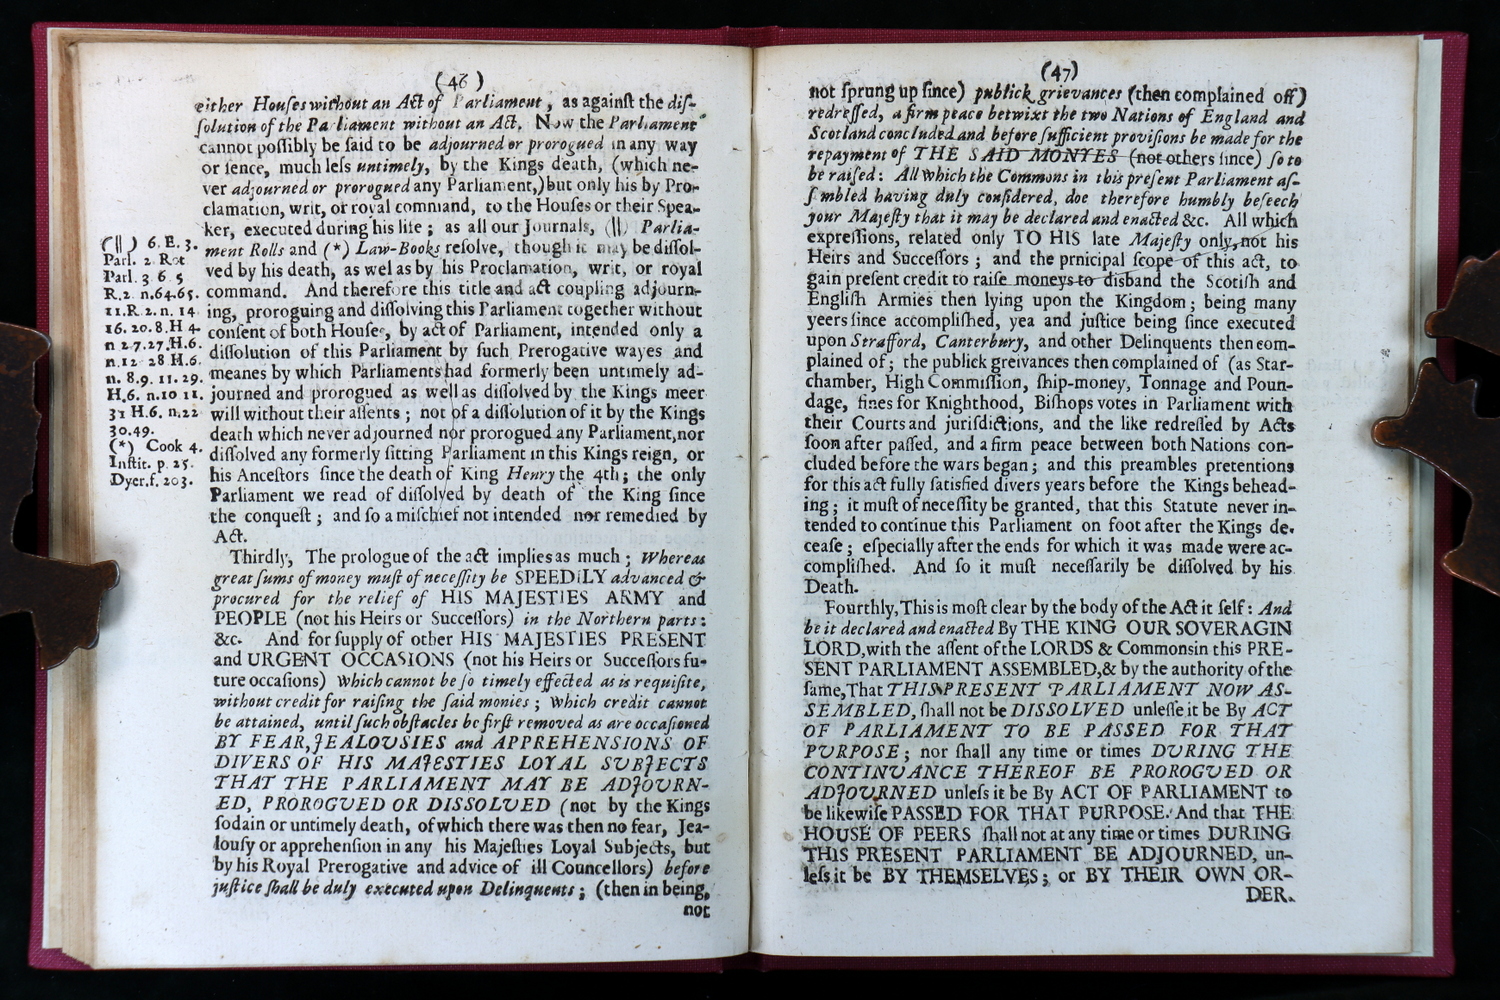 (46)
either Houſes without an Act of Parliament, as againſt the diſ-
ſolution of the Parliament without an Act. Now the Parliament
cannot poſſibly be ſaid to be adjourned or prorogued in any way
or ſence, much leſs untimely, by the Kings death, (which ne-
ver adjourned or prorogued any Parliament,) but only his by Pro-
clamation, writ, or royal command, to the Houſes or their Spea-
ker, executed during his life; as all our Journals, (||) Parlia-
ment Rolls and (*) Law-Books reſolve, though it may be diſſol-
ved by his death, as wel as by his Proclamation, writ, or royal
command. And therefore this title and act coupling adjourn-
ing, proroguing and diſſolving this Parliament together without
conſent of both Houſes, by act of Parliament, intended only a
diſſolution of this Parliament by ſuch Prerogative wayes and
meanes by which Parliaments had formerly been untimely ad-
journed and prorogued as well as diſſolved by the Kings meer
will without their aſſents; not of a diſſolution of it by the Kings
death which never adjourned nor prorogued any Parliament, nor
diſſolved any formerly ſitting Parliament in this Kings reign, or
his Anceſtors ſince the death of King Henry the 4th; the only
Parliament we read of diſſolved by death of the King ſince
the conqueſt; and ſo a miſchief not intended nor remedied by
Act.
Thirdly, The prologue of the act implies as much; Whereas
great ſums of money muſt of neceſſity be SPEEDILY advanced &
procured for the relief of HIS MAJESTIES ARMY and
PEOPLE (not his Heirs or Succeſſors) in the Northern parts:
&c. And for ſupply of other HIS MAJESTIES PRESENT
and URGENT OCCASIONS (not his Heirs or Succeſſors fu-
ture occaſions) Which cannot be ſo timely effected as is requiſite,
without credit for raiſing the ſaid monies; Which credit cannot
be attained, until ſuch obſtacles be firſt removed as are occaſioned
BY FEAR, JEALOUSIES and APPREHENSIONS OF
DIVERS OF HIS MAJESTIES LOYAL SUBJECTS
THAT THE PARLIAMENT MAY BE ADJOURN-
ED, PROROGUED OR DISSOLVED (not by the Kings
ſodain or untimely death, of which there was then no fear, Jea-
louſy or apprehenſion in any his Majeſties Loyal Subjects, but
by his Royal Prerogative and advice of ill Councellors) before
juſtice ſhall be duly executed upon Delinquents; (then in being,
not
(||) 6. E. 3.
Parl. 2. Rot
Parl. 3 6. 5
R. 2. n. 64. 65.
11. R. 2. n. 14
16. 20. 8. H 4.
n 2. 7. 27. H. 6.
n. 12 28 H. 6.
n. 8. 9. 11. 29.
H. 6. n. 10 11.
31 H. 6. n. 22
30. 49.
(*) Cook 4.
Inſtit. p. 25.
Dyer. f. 203.
(47)
not ſprung up ſince) publick grievances (then complained off)
redreſſed, a firm peace betwixt the two Nations of England and
Scotland concluded and before ſufficient proviſions be made for the
repayment of THE SAID MONYES (not others ſince) ſo to
be raiſed: All which the Commons in this preſent Parliament aſ-
ſmbled having duly conſidered, doe therefore humbly beſeech
your Majeſty that it may be declared and enacted &c. All which
expreſſions, related only TO HIS late Majeſty only, not his
Heirs and Succeſſors; and the prnicipal ſcope of this act, to
gain preſent credit to raiſe moneys to disband the Scotiſh and
Engliſh Armies then lying upon the Kingdom; being many
yeers ſince accompliſhed, yea and juſtice being ſince executed
upon Strafford, Canterbury, and other Delinquents then com-
plained of; the publick greivances then complained of (as Star-
chamber, High Commiſſion, ſhip-money, Tonnage and Poun-
dage, fines for Knighthood, Biſhops votes in Parliament with
their Courts and juriſdictions, and the like redreſſed by Acts
ſoon after paſſed, and a firm peace between both Nations con-
cluded before the wars began; and this preambles pretentions
for this act fully ſatisfied divers years before the Kings behead-
ing; it muſt of neceſſity be granted, that this Statute never in-
tended to continue this Parliament on foot after the Kings de-
ceaſe; eſpecially after the ends for which it was made were ac-
compliſhed. And ſo it muſt neceſſarily be diſſolved by his
Death.
Fourthly, This is moſt clear by the body of the Act it ſelf: And
be it declared and enacted By THE KING OUR SOVERAGIN
LORD, with the aſſent of the LORDS & Commons in this PRE-
SENT PARLIAMENT ASSEMBLED, & by the authority of the
ſame, That THIS PRESENT PARLIAMENT NOW AS-
SEMBLED, ſhall not be DISSOLVED unleſſe it be By ACT
OF PARLIAMENT TO BE PASSED FOR THAT
PURPOSE; nor ſhall any time or times DURING THE
CONTINUANCE THEREOF BE PROROGUED OR
ADJOURNED unleſs it be By ACT OF PARLIAMENT to
be likewiſe PASSED FOR THAT PURPOSE. And that THE
HOUSE OF PEERS ſhall not at any time or times DURING
THIS PRESENT PARLIAMENT BE ADJOURNED, un-
leſs it be BY THEMSELVES; or BY THEIR OWN OR-
DER.